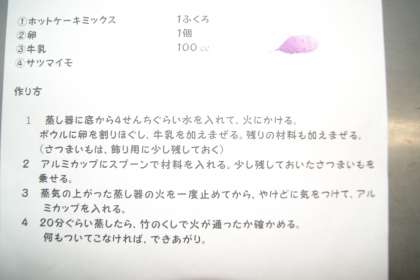 ①ホットケーキミックス 1ふくろ
②卵 1個
③牛乳 100㏄
④サツマイモ
作り方
1 蒸し器に底から4せんちぐらい水を入れて、火にかける。
ボウルに卵を割りほぐし、牛乳を加えまぜる。残りの材料も加えまぜる。
(さつまいもは、飾り用に少し残しておく)
2 アルミカップにスプーンで材料を入れる。少し残しておいたさつまいもを
乗せる。
3 蒸気の上がった蒸し器の火を一度止めてから、やけどに気をつけて、アル
ミカップを入れる。
4 20分ぐらい蒸したら、竹のくしで火が通ったか確かめる。
何もついてこなければ、できあがり。